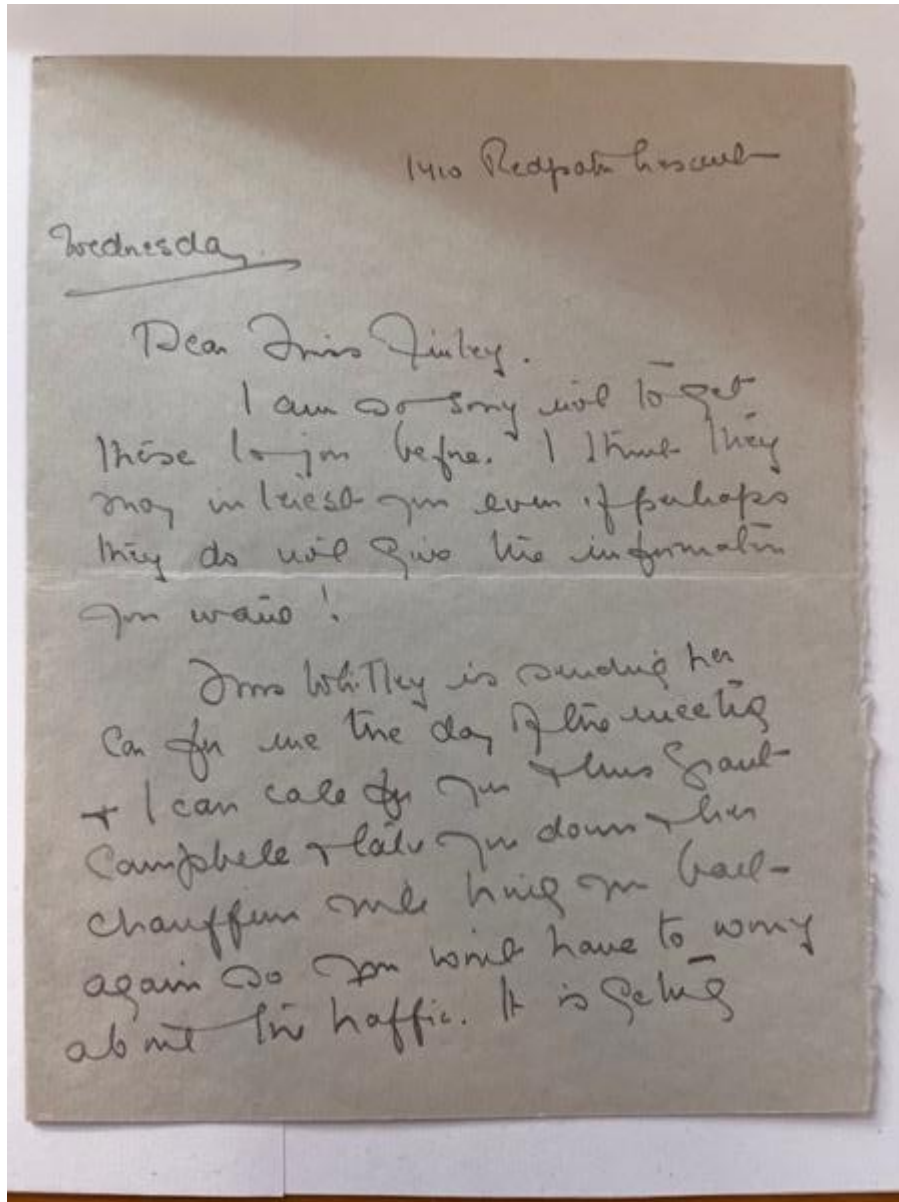 1410 Redpath Crescent
Wednesday.
Dear Miss Finley.
I am so sorry not to get
these to you before. I think they
may interest you even if perhaps
they do not give the information
you want!
Miss Whitley is sending her
car for me the day of the meeting
+ I can call for you + Miss Grant
Campbell + take you down + her
chauffeur will bring you back
again so you wont have to worry
about the traffic. It is getting